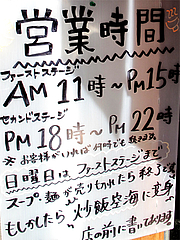 営業時間
ファーストステージ
AM 11時〜PM 15時
セカンドステージ
PM 18時〜PM 22時
※お客様がいれば何時でも
日曜日はファーストステージまで
スープ、麺が売り切れたら終了
もしかしたら炒飯空海に変身
店の前に書いてあります